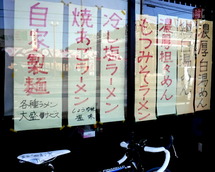 濃厚白湯めん
濃厚担々めん
もつみそラーメン
冷し塩ラーメン
焼あごラーメン
しょうゆ味
塩味
自家製麺
各種ラーメン
大盛サービス